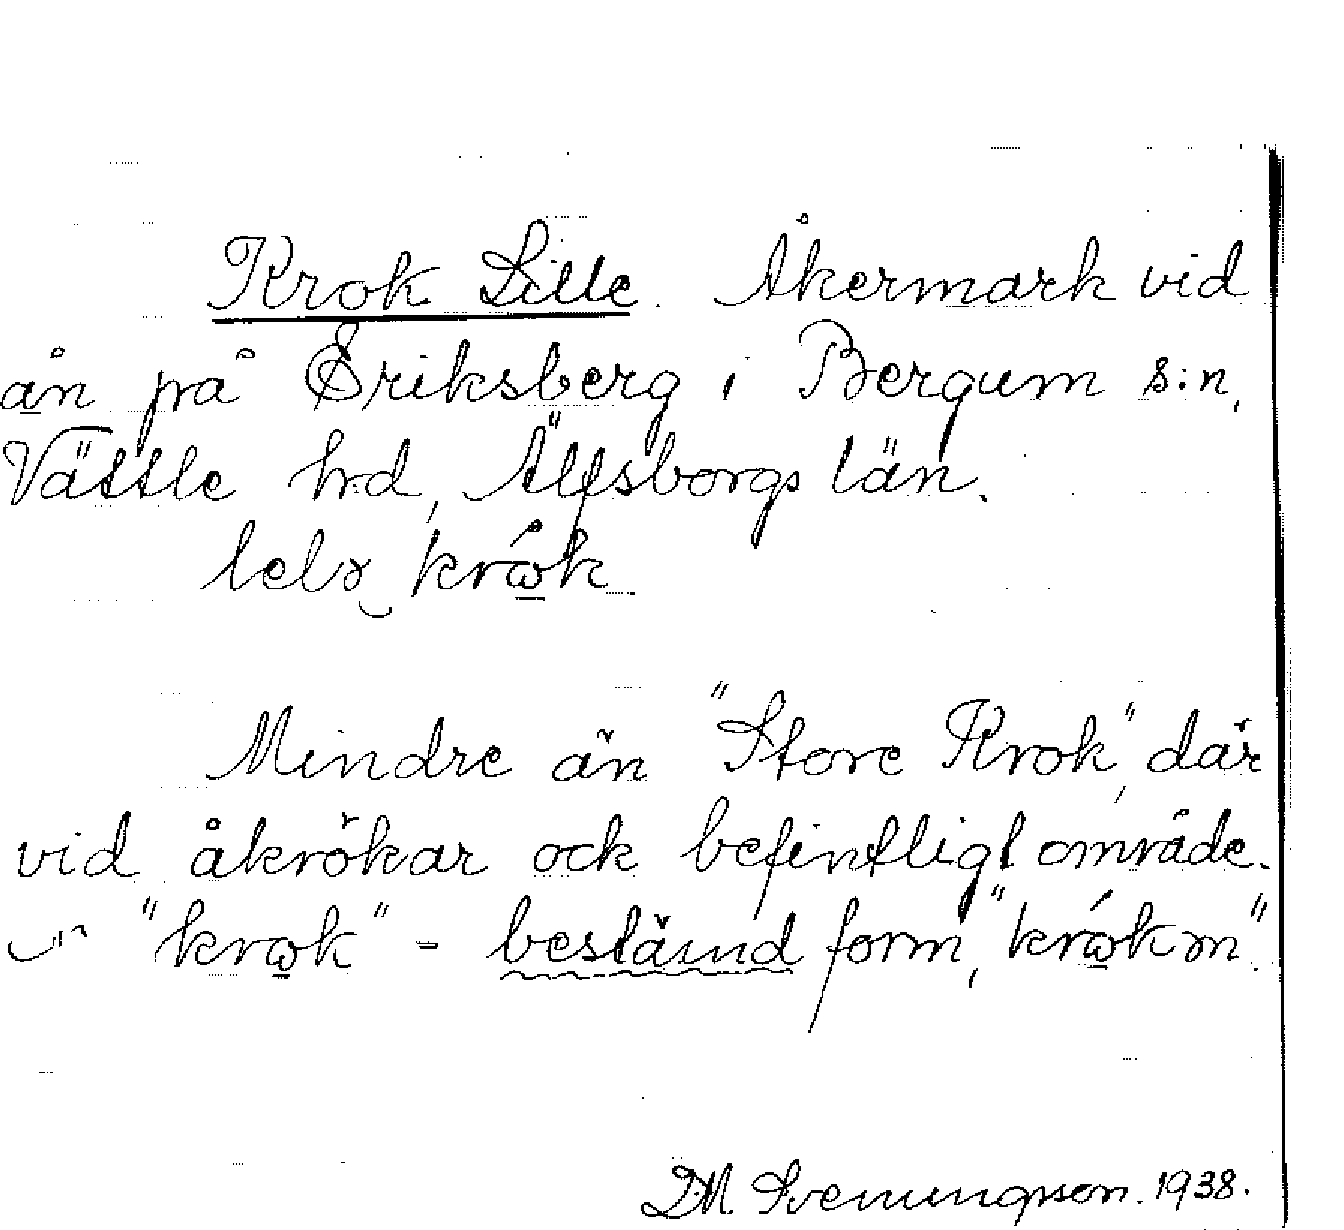 Krok Lille. Åkermark vid
ån på Eriksberg i Bergum s:n,
Vättle hrd, Älfsborgs län.
Mindre än "Store Krok", där
vid åkrökar ock befintligt område.
"krok" - bestämd form, "krókɷn".
D.M. Svenungsson. 1938.